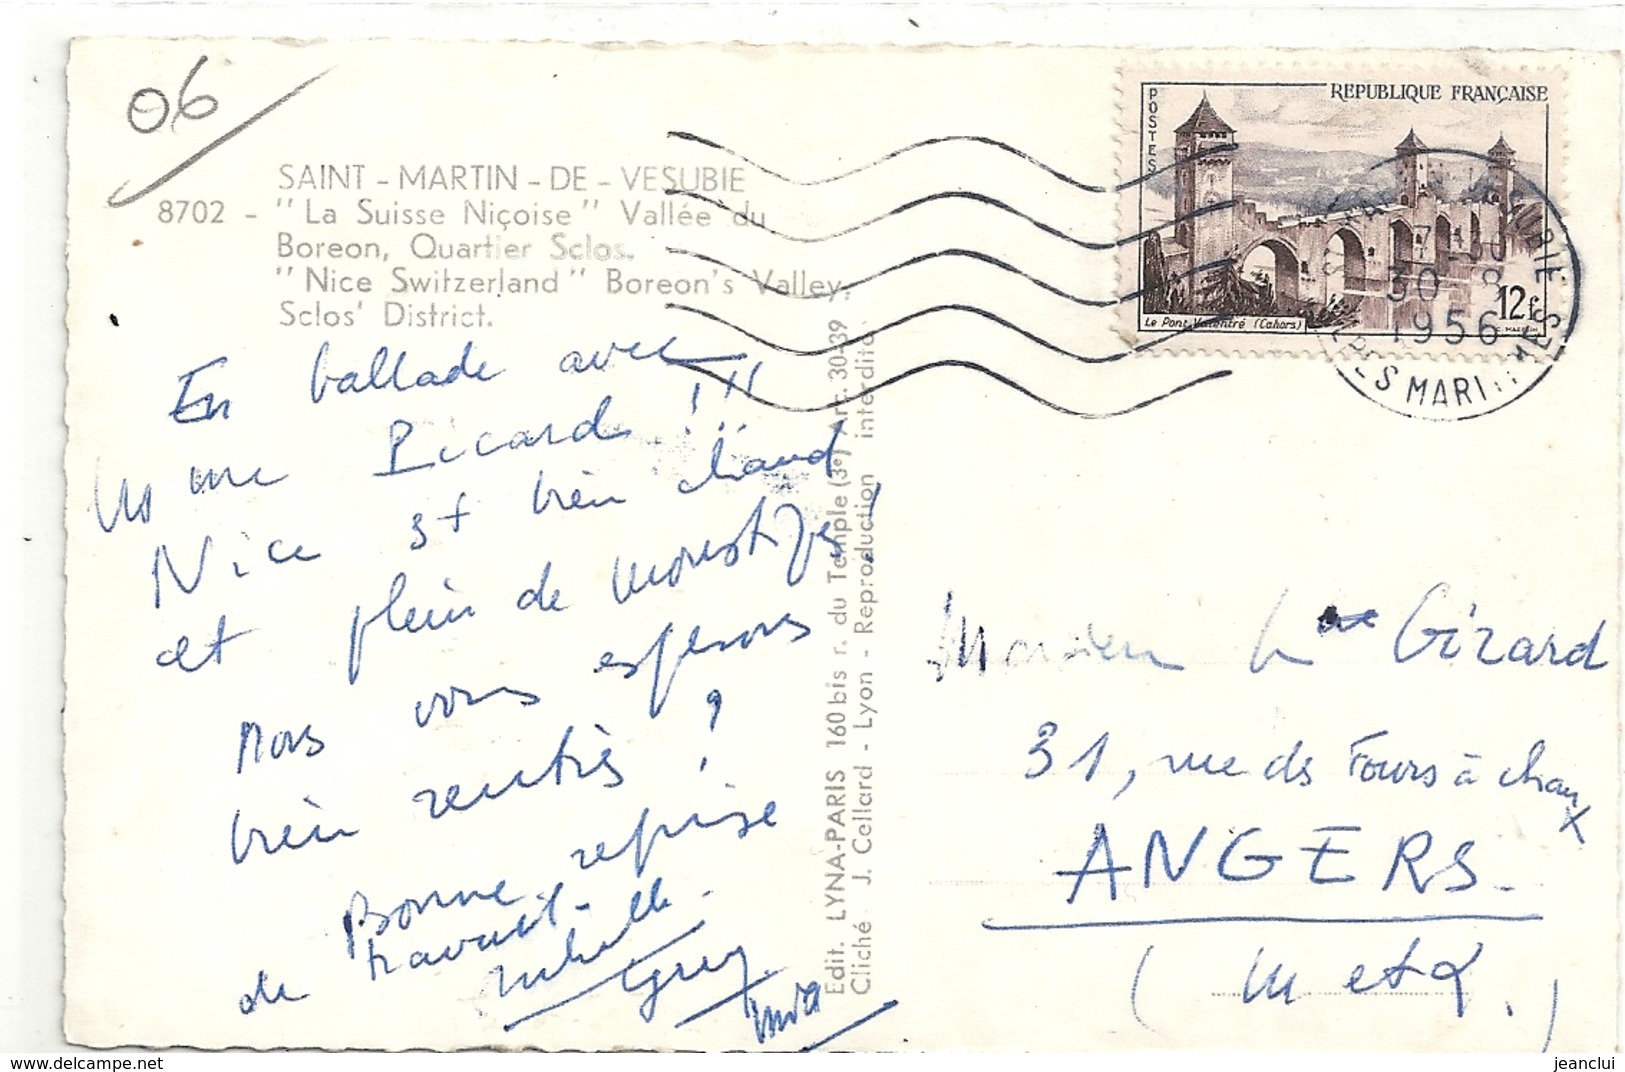 06
SAINT - MARTIN - DE - VESUBIE
8702 - "La Suisse Niçoise" Vallée du
Boreon, Quartier Sclos.
"Nice Switzerland" Boreon's Valley,
Sclos' District.
En ballade avec
Picard !!!
Nice est bien chaud
et plein de moustiques !
Nous vous espérons
bien rentrés ?
Bonne reprise
de travail.
Edit. LYNA-PARIS 160 bis r. du Temple (3e) Arc. 30-39
Cliché J. Cellard - Lyon - Reproduction interdite.
POSTES
REPUBLIQUE FRANÇAISE
Le Pont Valentré (Cahors)
12f
30 - 8
1956
Monsieur Girard
31, rue des Fours à chaux
ANGERS.
(M et L.)
jeanclui